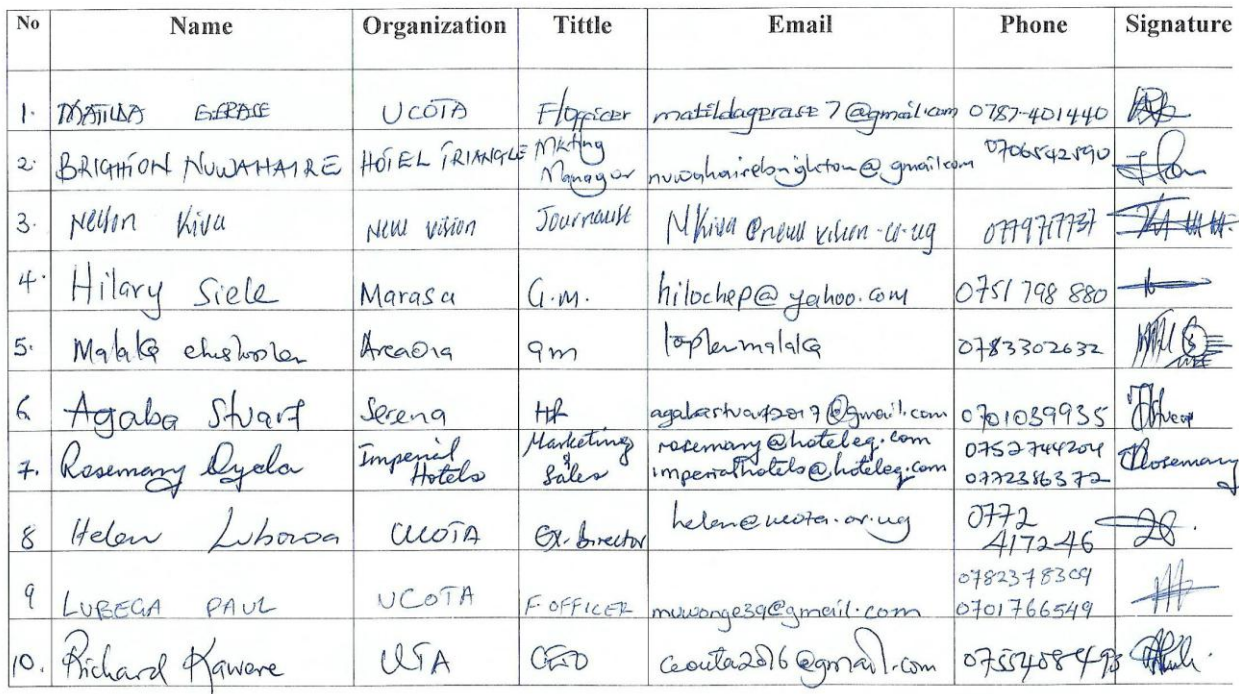 No Name Organization Tittle Email Phone Signature
1. MATILDA GERASE UCOTA F/Officer matildagerase7@gmail.com 0787-401440
2. BRIGHTON NUWAHAIRE HOTEL TRIANGLE Mkting Manager nuwahairebrighton@gmail.com 0706542590
3. Nelson Kiva New Vision Journalist Nkiva@newvision.co.ug 0779717737
4. Hilary Siele Marasa G.m. hilochep@yahoo.com 0751 798 880
5. Malaka Arcadia gm toplermalaka 0783302632
6. Agaba Stuart Serena HR agabastuart2017@gmail.com 0701039935
7. Rosemary Oyela Imperial Hotels Marketing & Sales rosemary@hoteleq.com 0752744204
imperialhotels@hoteleq.com 0772386372 Rosemary
8 Helen Lubowa UCOTA Ex. Director helen@ucota.or.ug 0772
417246
9 LUBEGA PAUL UCOTA F.OFFICER muwonge39@gmail.com 0782378309
0701766549
10. Richard Kawere UTA CEO ceouta2016@gmail.com 0755408495